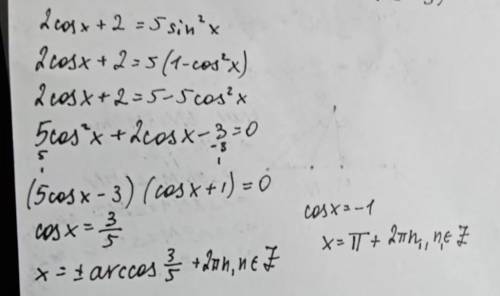 2cosx + 2 = 5sin²x
2cosx + 2 = 5(1-cos²x)
2cosx + 2 = 5 - 5cos²x
5cos²x + 2cosx - 3 = 0
5 -3
1 1
(5cosx - 3) (cosx + 1) = 0
cosx = 3/5
x = ± arccos 3/5 + 2πn, n ∈ Z
cosx = -1
x = π + 2πn₁, n₁ ∈ Z